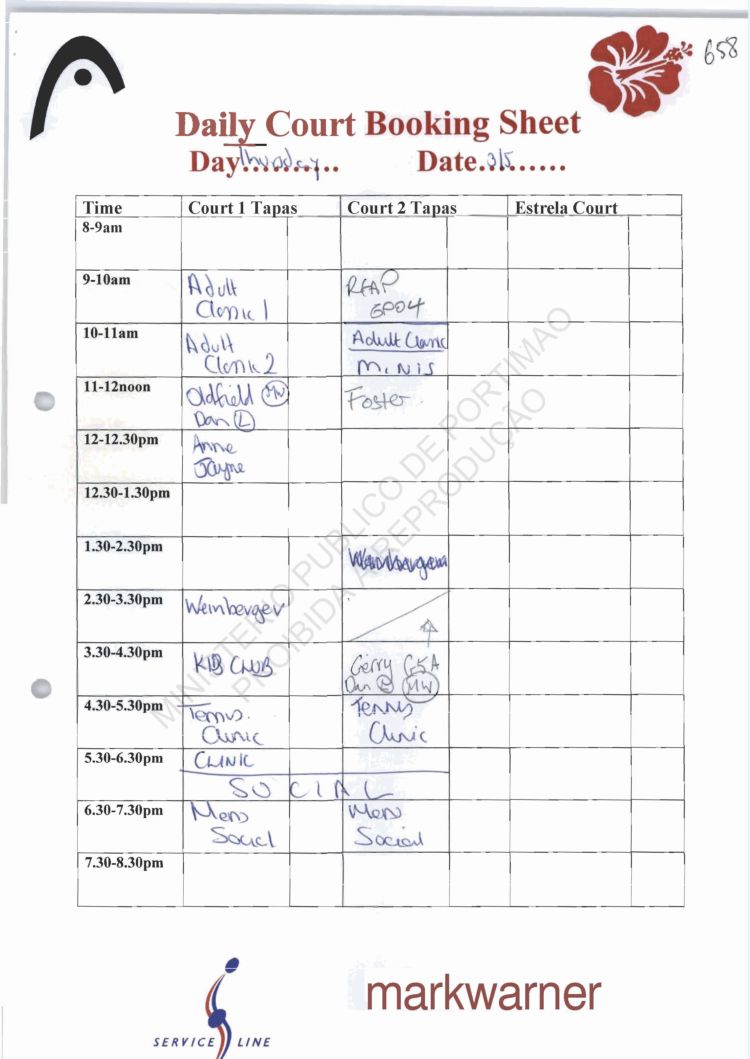 658
Daily Court Booking Sheet
Day Thursday.......... Date.3/5.......
Time Court 1 Tapas Court 2 Tapas Estrela Court
8-9am
9-10am Adult Clinic 1 REAP GP04
10-11am Adult Clinic 2 Adult Clinic MINIS
11-12noon Oldfield MW Dan L Foster
12-12.30pm Anne Jayne
12.30-1.30pm
1.30-2.30pm Weinberger
2.30-3.30pm Weinberger
3.30-4.30pm KID CLUB Gerry G5A Dan MW
4.30-5.30pm Tennis Clinic Tennis Clinic
5.30-6.30pm CLINIC
SOCIAL
6.30-7.30pm Mens Social Mens Social
7.30-8.30pm
MINISTERIO PUBLICO DE PORTIMAO
PROIBIDA A REPRODUÇÃO
SERVICE LINE
markwarner